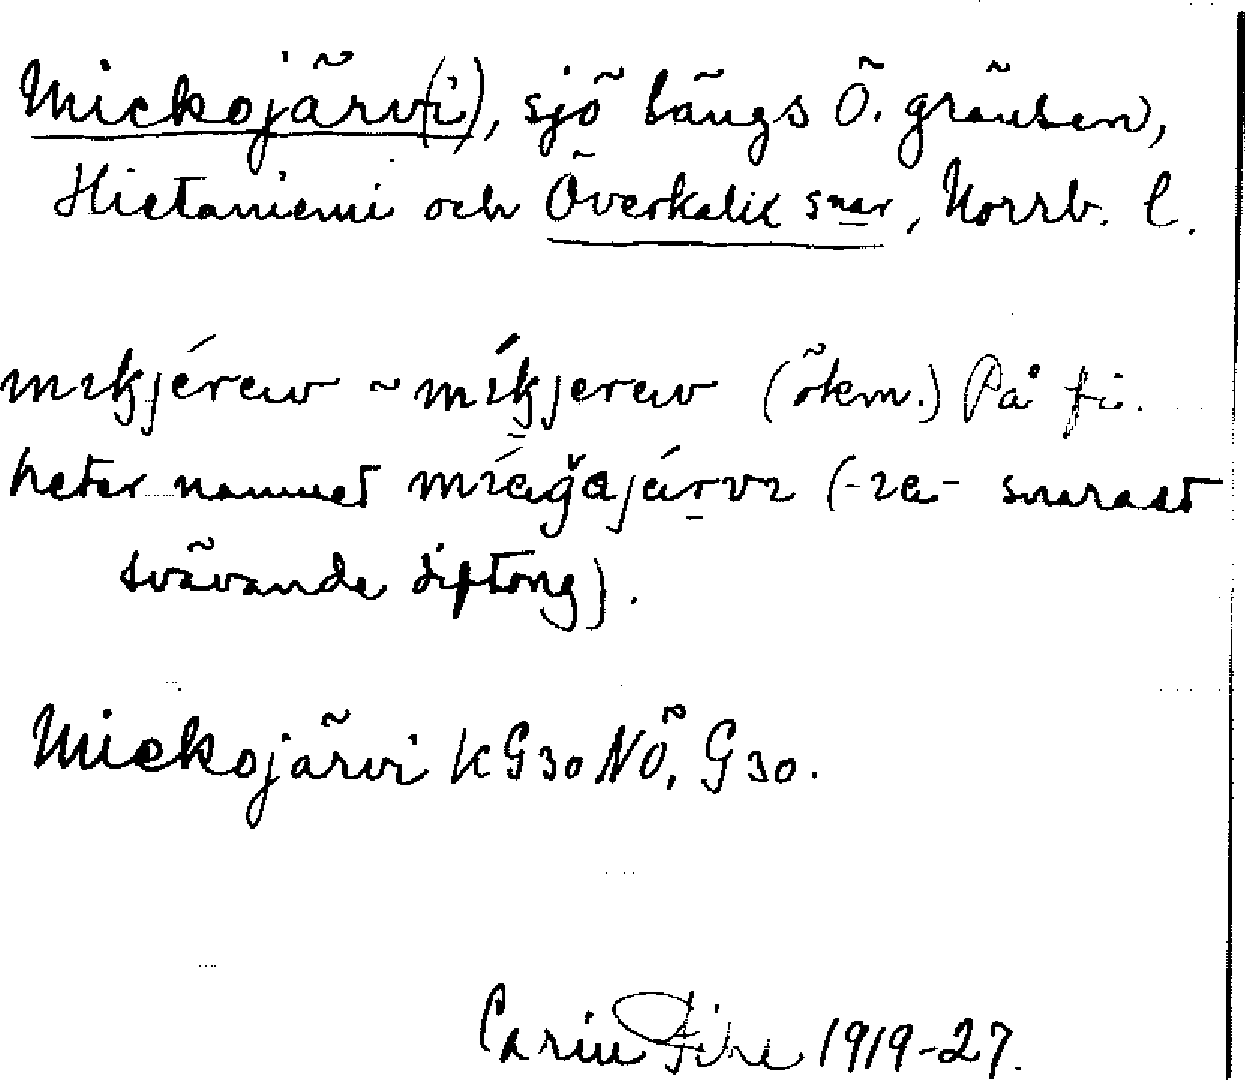 Mickojärv(i), sjö längs Ö. gränsen,
Hietaniemi och Överkalix snar, Norrb. l.
mıkjérew ~ míkjerew (ökm.) På fi.
heter namnet míeğajárvı (-ıe- snarast
svävande diftong).
Mickojärvi KG30NÖ, G30.
Carin Pihl 1919-27.